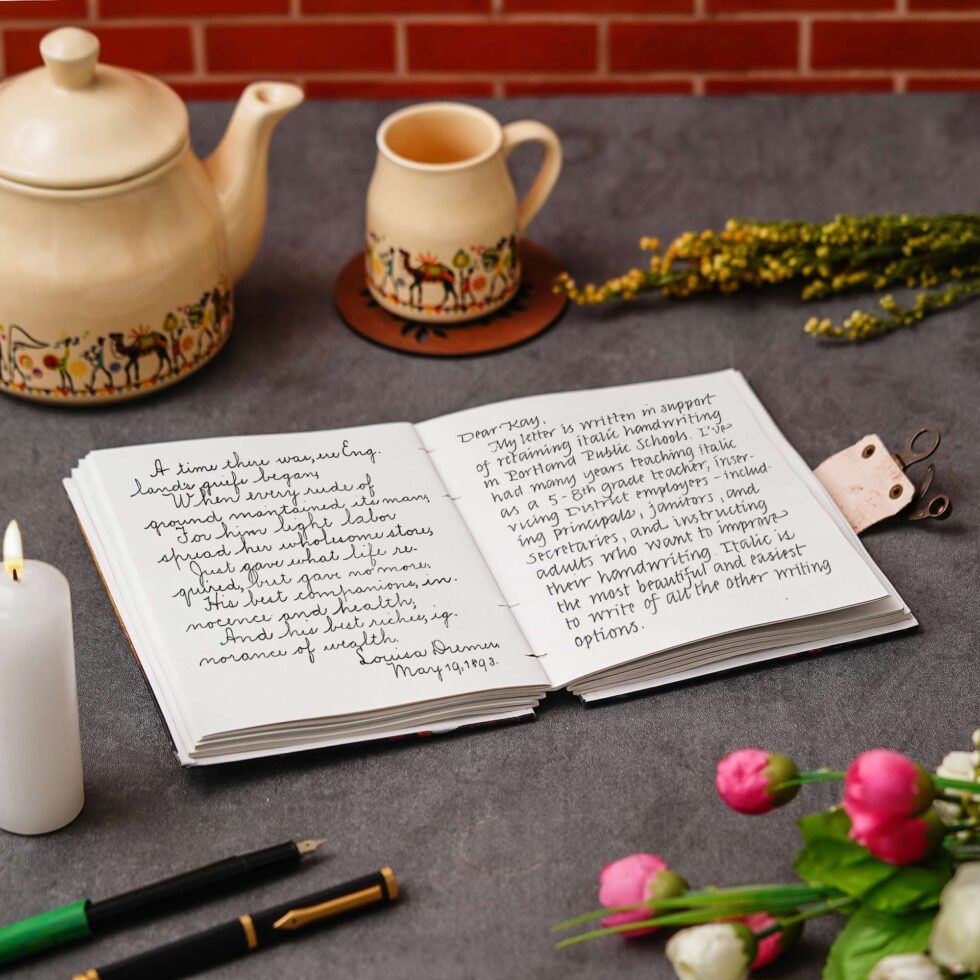 A time there was, ere Eng.
lands griefs began,
When every rude of
ground maintained its man,
For him light labor
spread her wholesome store,
Just gave what life re-
quired, but gave no more,
His best companions, in-
nocence and health,
And his best riches, ig-
norance of wealth.
Louisa
May 19, 1893.
Dear Kay,
My letter is written in support
of retaining italic handwriting
in Portland Public Schools. I've
had many years teaching italic
as a 5-8th grade teacher, inser-
vicing District employees - includ-
ing principals, janitors, and
secretaries, and instructing
adults who want to improve
their handwriting. Italic is
the most beautiful and easiest
to write of all the other writing
options.